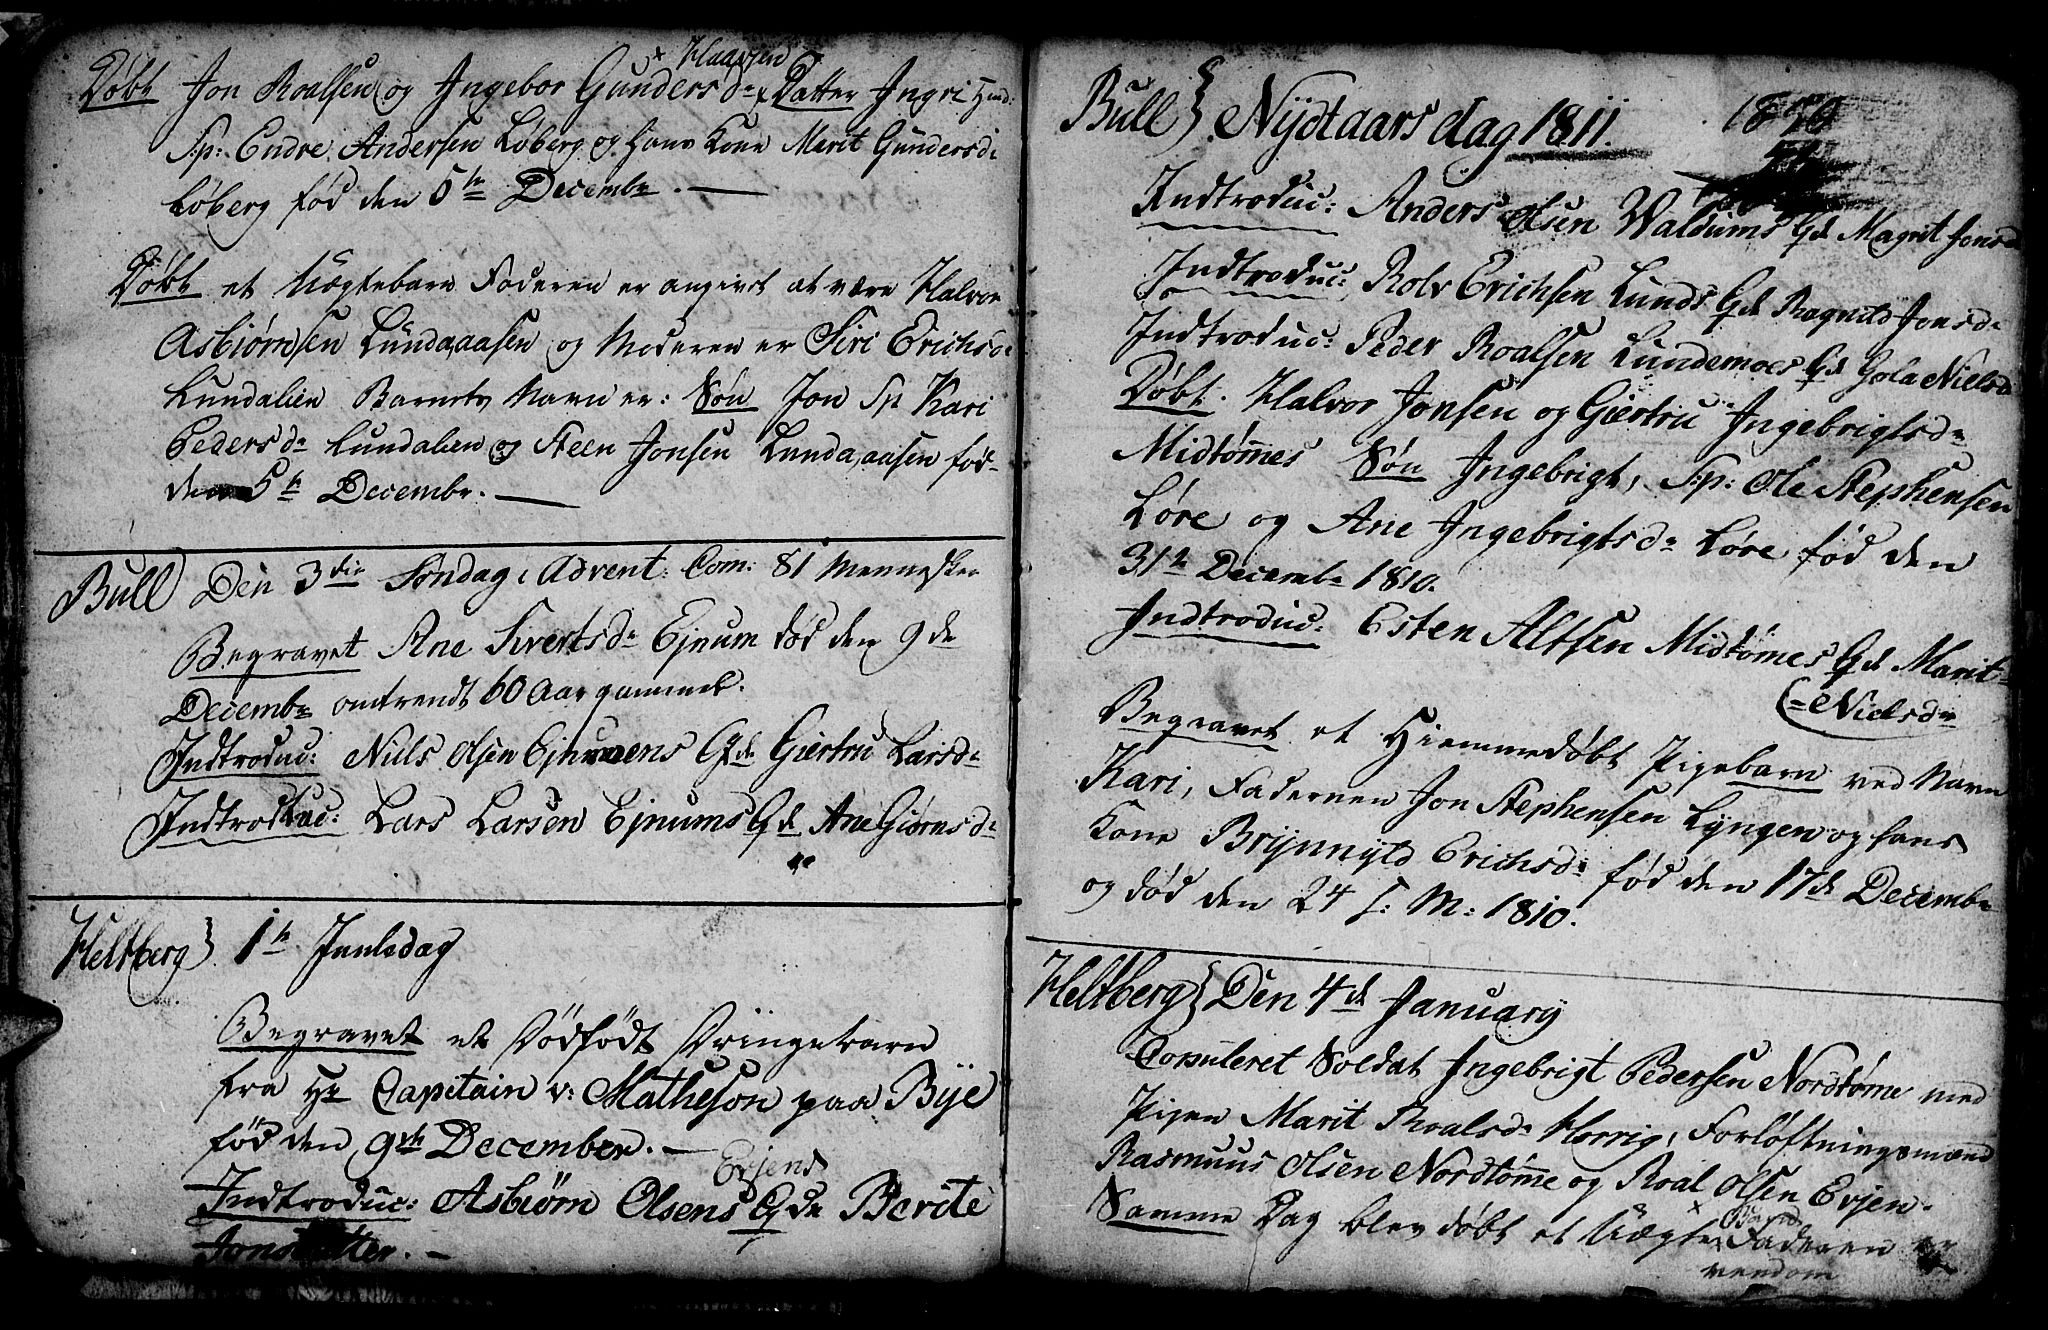 Haagen
Døbt Jon Roalsen og Ingebor Gundersdr Datter Ingri
Sp: Endre Andersen Løberg og hans Kone Marit Gundersd:
Løberg fød den 5te Decembr.
Døbt et Uægtebarn Faderen er angivet at være Halvor
Asbiørnsen Lundaaasen og Moderen er Siri Erichsd:
Lundalien Barnets Navn er: Søn Jon Sp Kari
Pedersdr Lundalien og Steen Jonsen Lundaaasen fød
den 5te Decembr.
Bull Den 3die Søndag i Advent: Com: 81 Mennesker
Begravet Ane Sivertsdr Ejnum død den 9de
Decembr omtrendt 60 Aar gammel.
Indtroduc: Niels Olsen Ejnumens Qde Giertru Larsdr
Indtroduc: Lars Larsen Ejnums Qde Ane Giørnsdr
Heltberg} 1te Juuledag
Begravet et Dødfødt Drængebarn
fra Hr Capitain v: Matheson paa Bye
fød den 9de December.
Evjens
Indtroduc: Asbiørn Olsens Qde Berite
Jonsdatter.
Bull} Nydtaarsdag 1811. 1810
Indtroduc: Anders Olsen Waldums Qd Magrit Jonsd
Indtroduc: Rolv Erichsen Lunds Qd Ragnild Jonsdr
Indtroduc: Peder Roalsen Lundemoes Qd Gola Nielsd
Døbt. Halvor Jonsen og Giertru Ingebrigtsdr
Midtømes Søn Ingebrigt, Sp: Ole Stephensen
Løre og Ane Ingebrigtsdr Løre fød den
31te Decembr 1810.
Indtroduc: Esten Altsen Midtømes Qd Marit
=Nielsdr
Begravet et Hiemmedøbt Pigebarn ved Navn
Kari, Faderen Jon Stephensen Lyngen og hans
Kone Brynnyld Erichsdr fød den 17de Decembr
og død den 24 s: M: 1810.
Heltberg} Den 4de January
Copuleret Soldat Ingebrigt Pedersen Nordtøme med
Pigen Marit Roalsdr Horrig, Forløftningsmænd
Rasmuus Olsen Nordtømme og Roal Olsen Evjen.
Barn
Samme Dag blev døbt et Uægte Faderen er